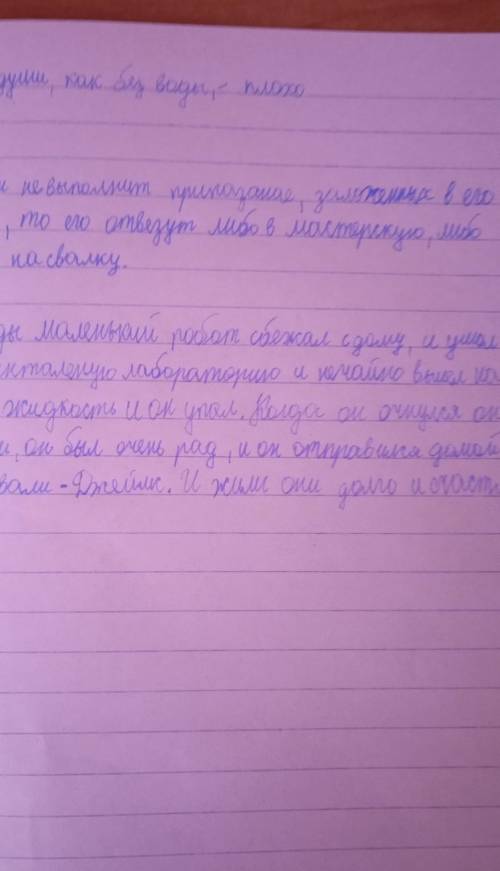 души, как без воды,- плохо
и не выполнит приказание, заложенных в его
, то его отвезут либо в мастерскую, либо
на свалку.
ды маленький робот сбежал с дому, и ушол
лабораторию и нечайно вышел на
жидкость и он упал. Когда он очнулся он
и, он был очень рад, и он отправился домой
вали - Джеймс. И жили они долго и счаст